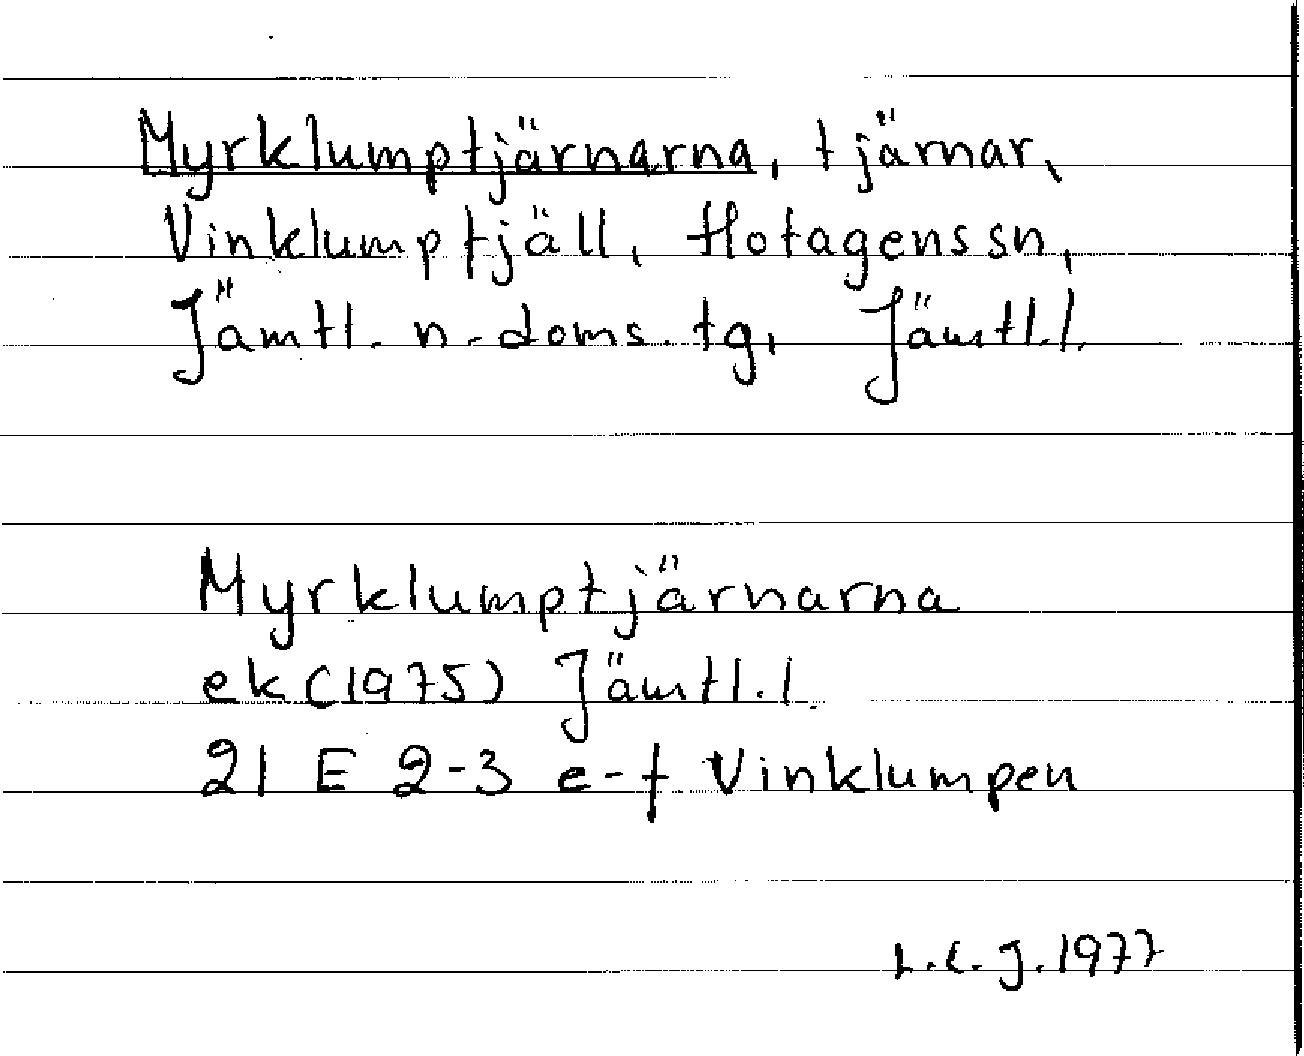 Myrklumptjärnarna, tjärnar,
Vinklumptjäll, Hotagens sn,
Jämtl. n. doms. tg, Jämtl. l.
Myrklumptjärnarna
ek (1975) Jämtl. l.
21 E 2-3 e-f Vinklumpen
J. 1977